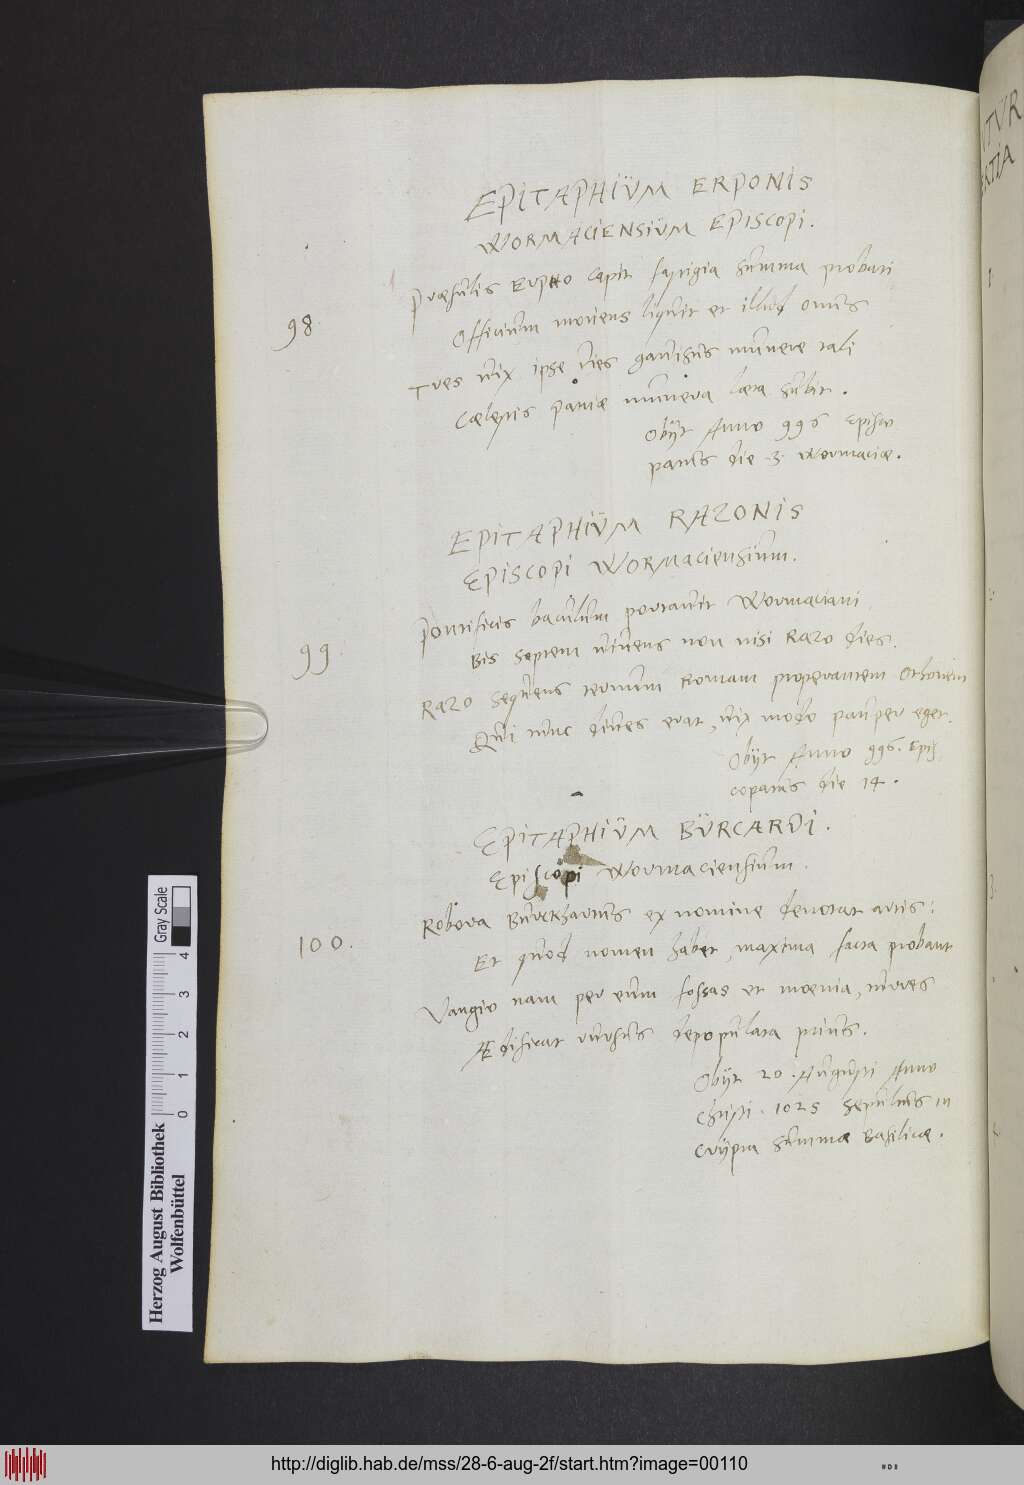 EPITAPHIŬM ERPONIS
WORMACIENSIŬM EPISCOPI.
98
Præsulis Erpho capit fastigia summa probati
Officium moriens liquit et illud onus
Tres vix ipse dies gavisus munere tali
Cælestis patriæ munera læta subit.
Obijt Anno 996 Episco
patus die 3. Wormaciæ.
EPITAPHIŬM RAZONIS
EPISCOPI WORMACIENSIUM.
99.
Pontificis baculum portavit Wormaciani
Bis septem vivens non nisi Razo dies.
Razo sequens tervum Romam properantem Othonem
Qui nunc dives erat, vix modo pauper eget.
Obijt Anno 996. Epis
copatus die 14.
EPITAPHIŬM BŬRCARDI.
Episcopi Wormaciensium.
100.
Robora Burckhardus ex nomine denotat arcis:
Et quod nomen habet, maxima facta probant
Vangio nam per eum fossas et mœnia, turres
Ædificat rursus depopulata prius.
Obijt 20. Augusti Anno
Christi. 1025 Sepultus in
Crypta Summæ Basilicæ.
NTVR
ERTIA
Gray Scale
0 1 2 3 4
Herzog August Bibliothek
Wolfenbüttel
http://diglib.hab.de/mss/28-6-aug-2f/start.htm?image=00110